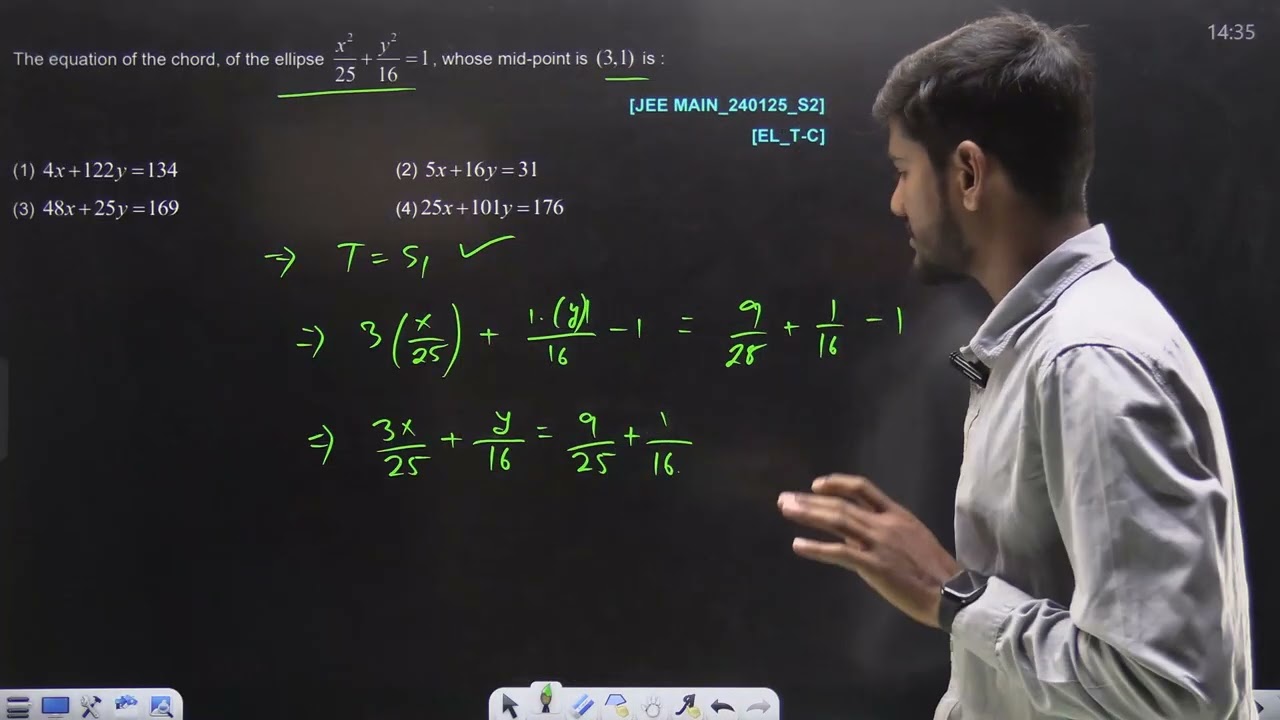 14:35
The equation of the chord, of the ellipse x²/25 + y²/16 = 1, whose mid-point is (3,1) is :
[JEE MAIN_240125_S2]
[EL_T-C]
(1) 4x+122y=134 (2) 5x+16y=31
(3) 48x+25y=169 (4) 25x+101y=176
⇒ T = S₁ ✓
⇒ 3(x/25) + 1·(y)/16 − 1 = 9/25 + 1/16 − 1
⇒ 3x/25 + y/16 = 9/25 + 1/16